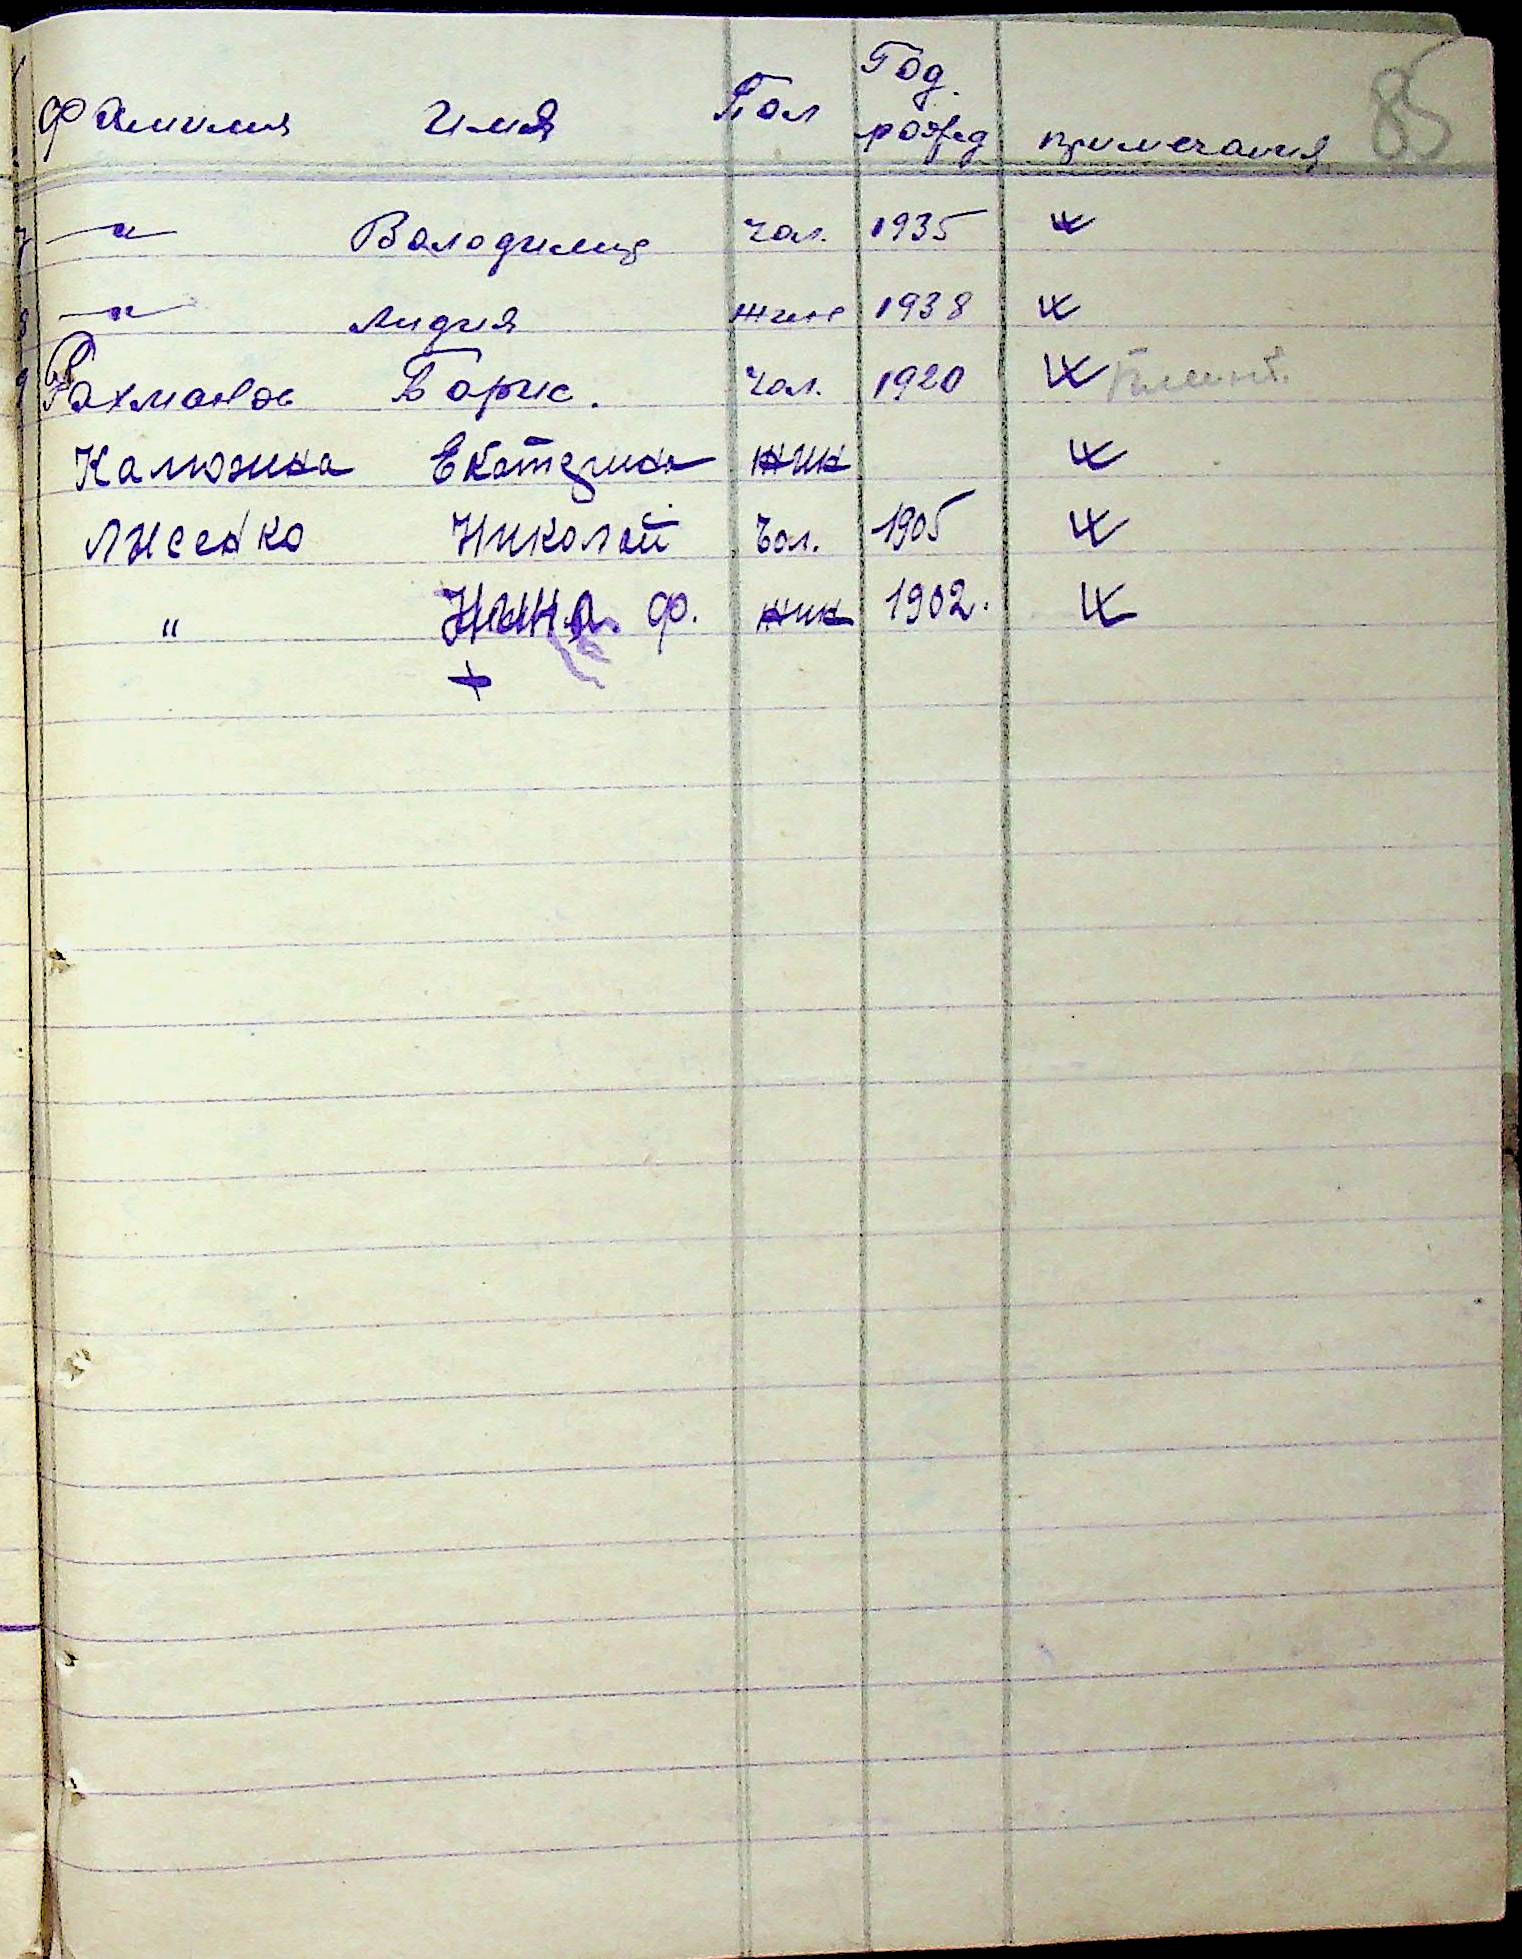 85
Фамилия Имя Пол Год рожд примечания
7 —"— Володимир чол. 1935
8 —"— Лидия жин 1938
9 Рахманов Борис. чол. 1920
Калюжна Екатерина жин
Лисенко Николай Чол. 1905
" Нина Ф. жин 1902.
+